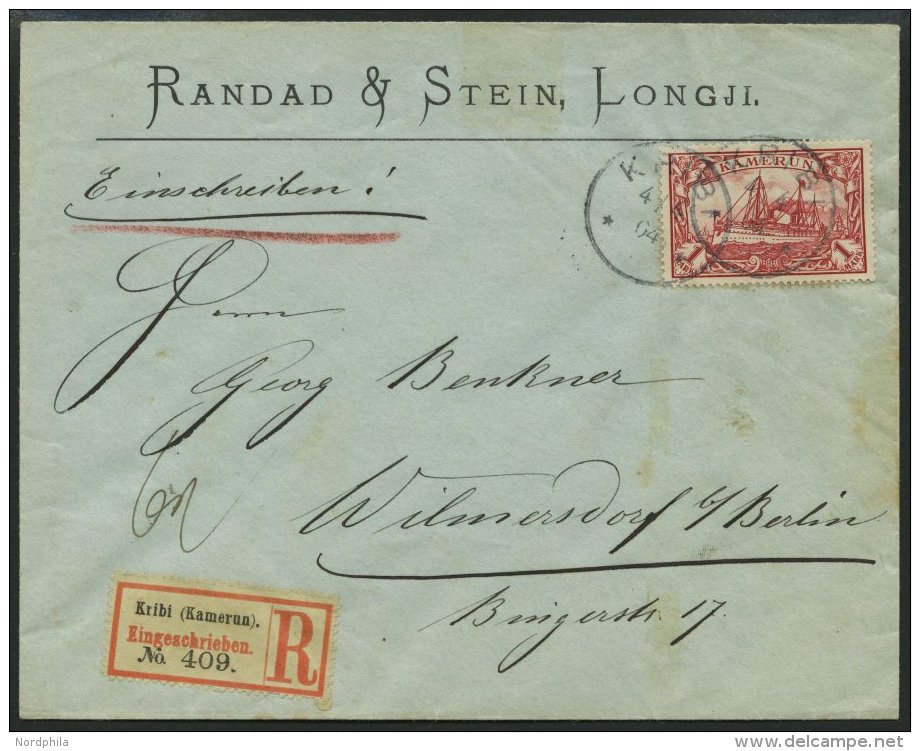 RANDAD & STEIN, LONGJI.
Einschreiben!
KAMERUN
KRIBI
4
04
1 MARK 1 MARK
Herrn
Georg Benkner
Wilmersdorf b/Berlin
Bingerstr. 17.
Kribi (Kamerun).
Eingeschrieben.
No. 409.
R
Nordphila
www.delcampe.net